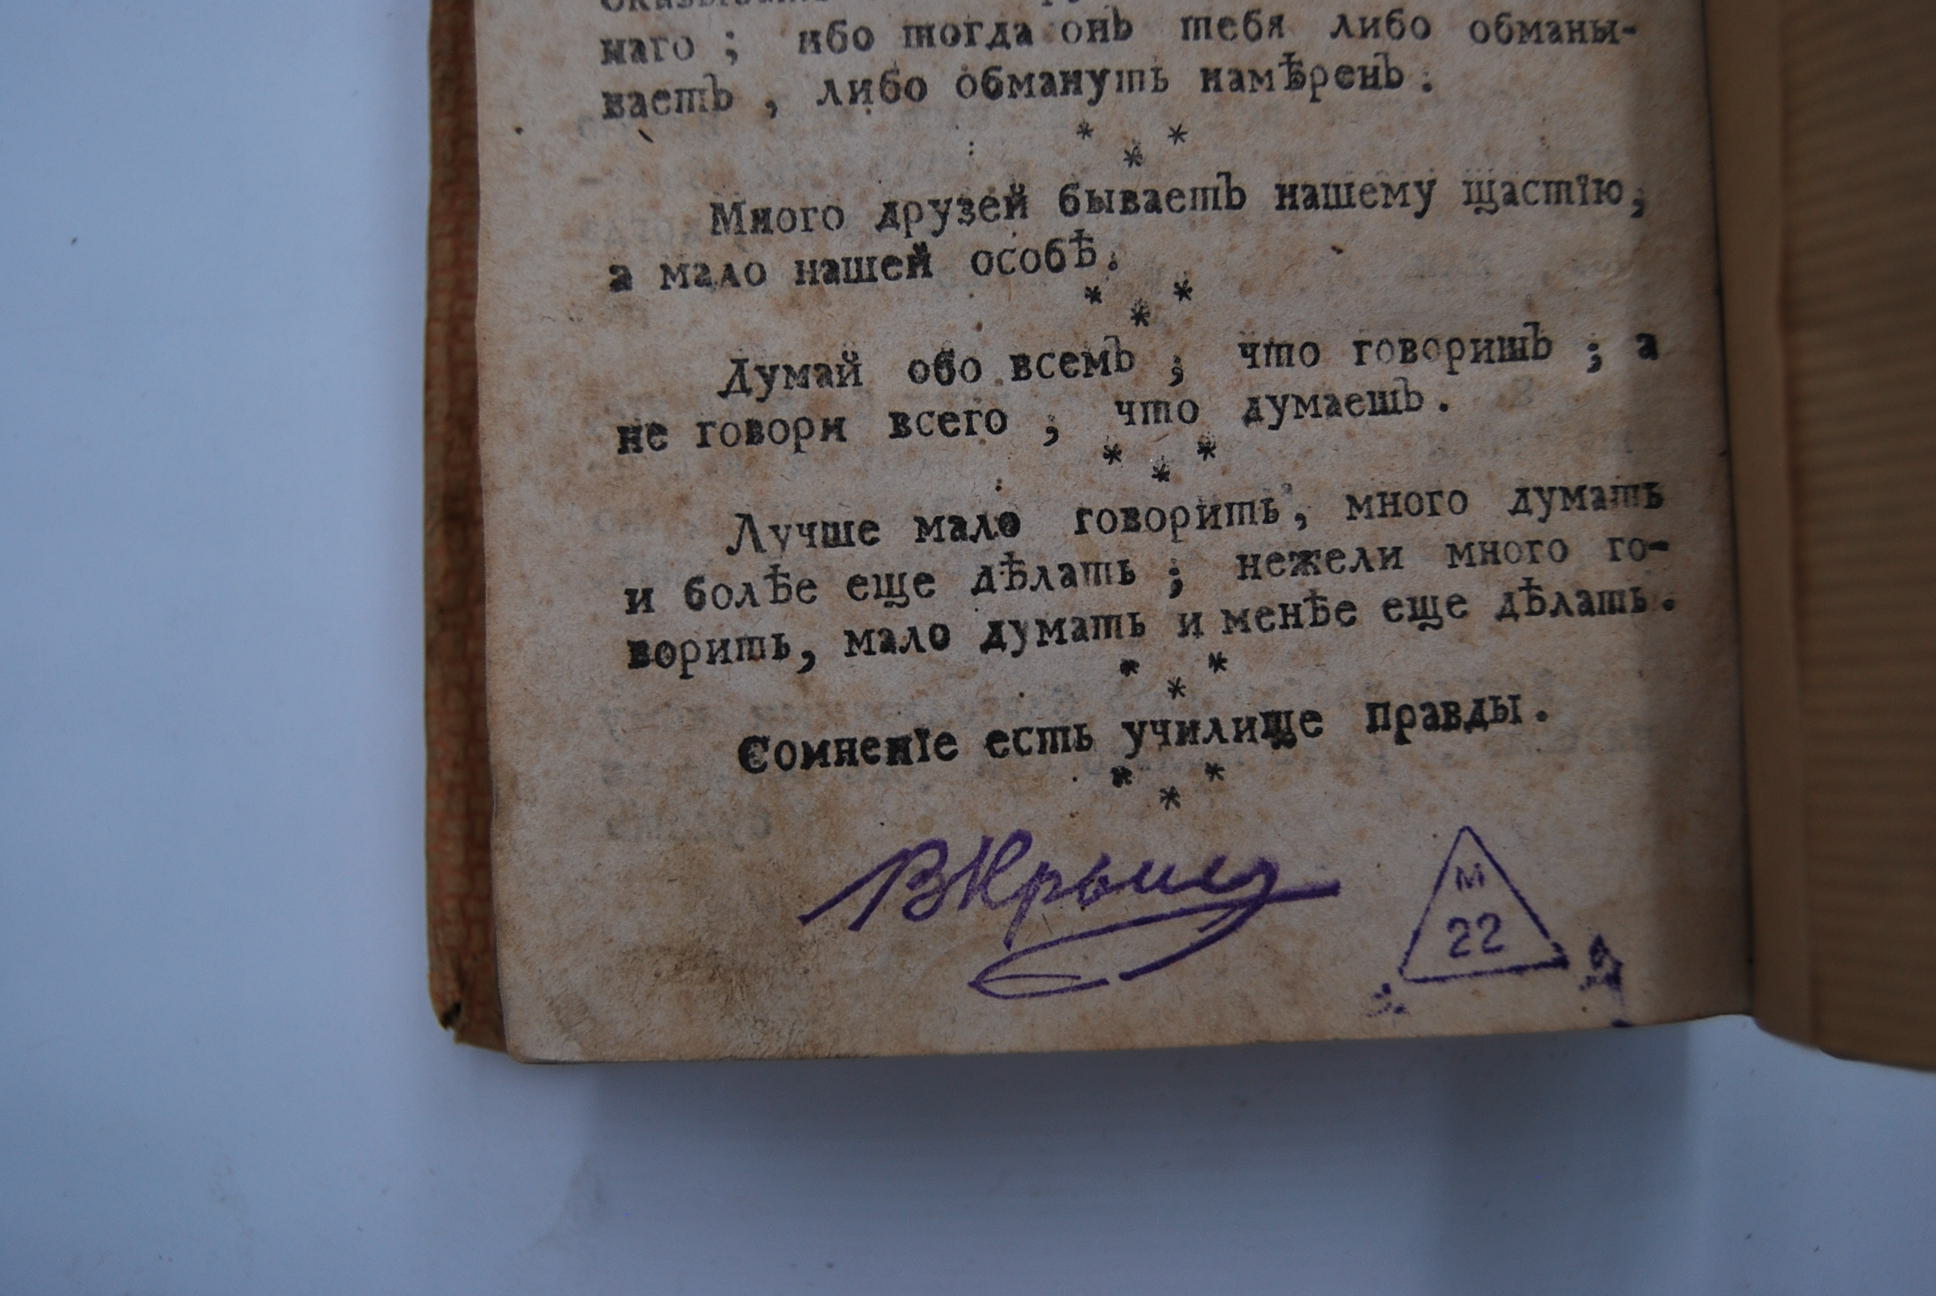 наго ; ибо тогда онъ тебя либо обманы-
ваетъ , либо обмануть намѣренъ .
* * *
Много друзей бываетъ нашему щастїю,
а мало нашей особѣ.
* * *
Думай обо всемъ , что говоришь ; а
не говори всего , что думаешь .
* * *
Лучше мало говорить, много думать
и болѣе еще дѣлать ; нежели много го-
ворить, мало думать и менѣе еще дѣлать.
* * *
Сомненїе есть училище правды .
* * *
М
22